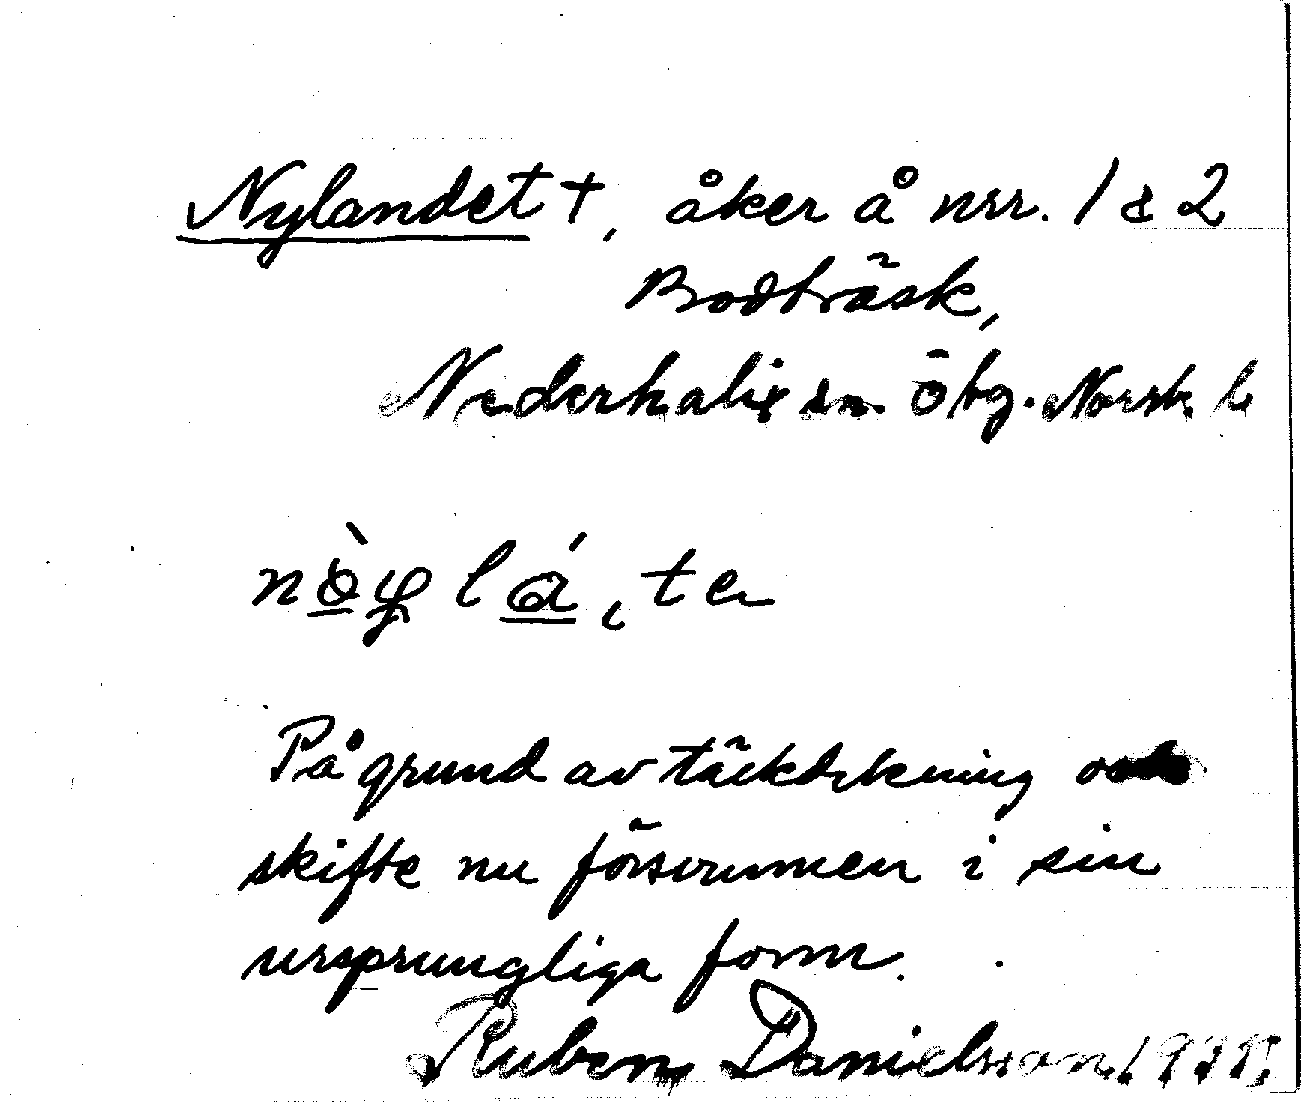 Nylandet †, åker å nrr. 1 & 2
Bodträsk,
Nederkalix sn. Öbg. Norrb. l.
På grund av täckdikning och
skifte nu försvunnen i sin
ursprungliga form.
Ruben Danielsson